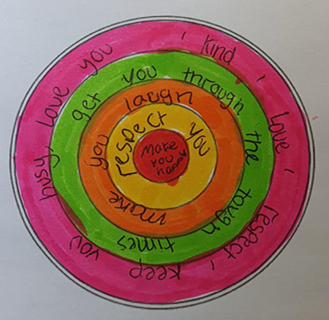 kind, love, respect, keep you busy, love you,
get you through the tough times
make you laugh
respect you
Make
you
happy